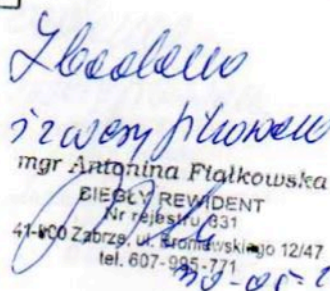 Zbadano
i zweryfikowano
mgr Antonina Fiałkowska
BIEGŁY REWIDENT
Nr rejestru 331
41-800 Zabrze, ul. Broniewskiego 12/47
tel. 607-995-771
30-05-